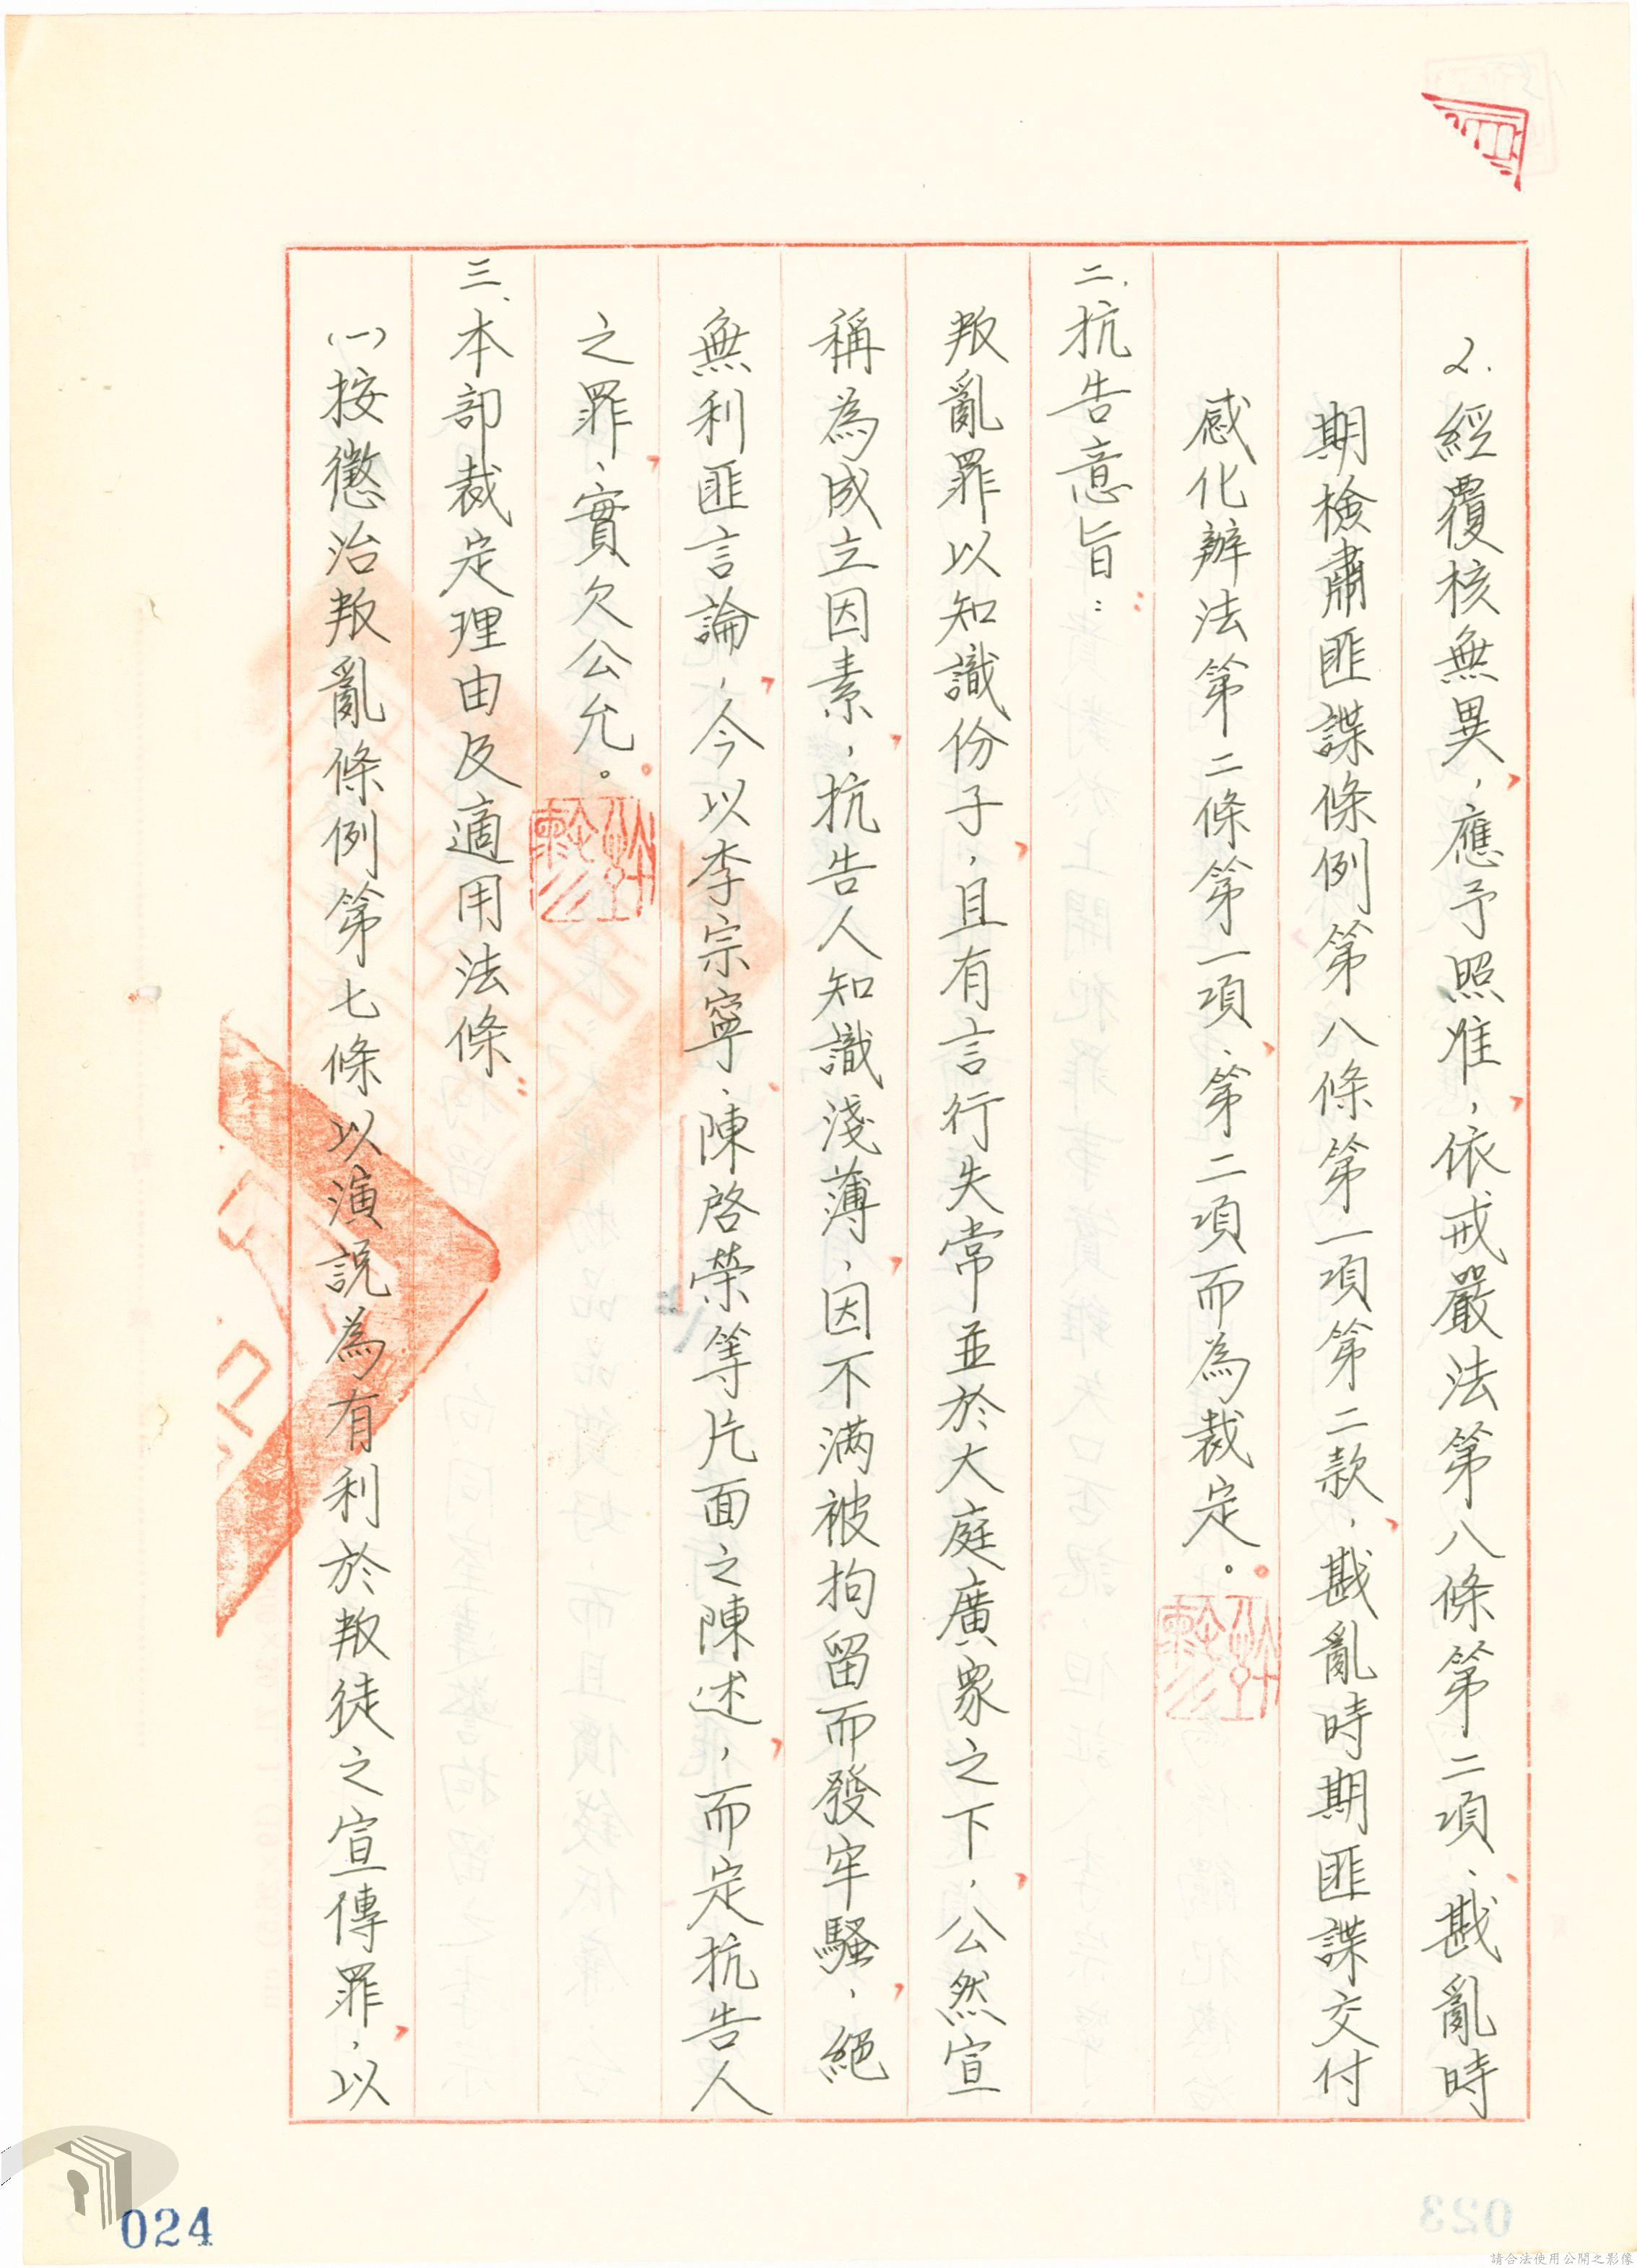 2.經覆核無異，應予照准，依戒嚴法第八條第二項、戡亂時
期檢肅匪諜條例第八條第一項第二款，戡亂時期匪諜交付
感化辦法第二條第一項、第二項而為裁定。
二、抗告意旨：
叛亂罪以知識份子，且有言行失常並於大庭廣眾之下，公然宣
稱為成立因素，抗告人知識淺薄，因不滿被拘留而發牢騷，絕
無利匪言論，今以李宗寧、陳啓榮等片面之陳述，而定抗告人
之罪，實欠公允。
三、本部裁定理由及適用法條：
(一)按懲治叛亂條例第七條以演説為有利於叛徒之宣傳罪，以
024
023
請合法使用公開之影像